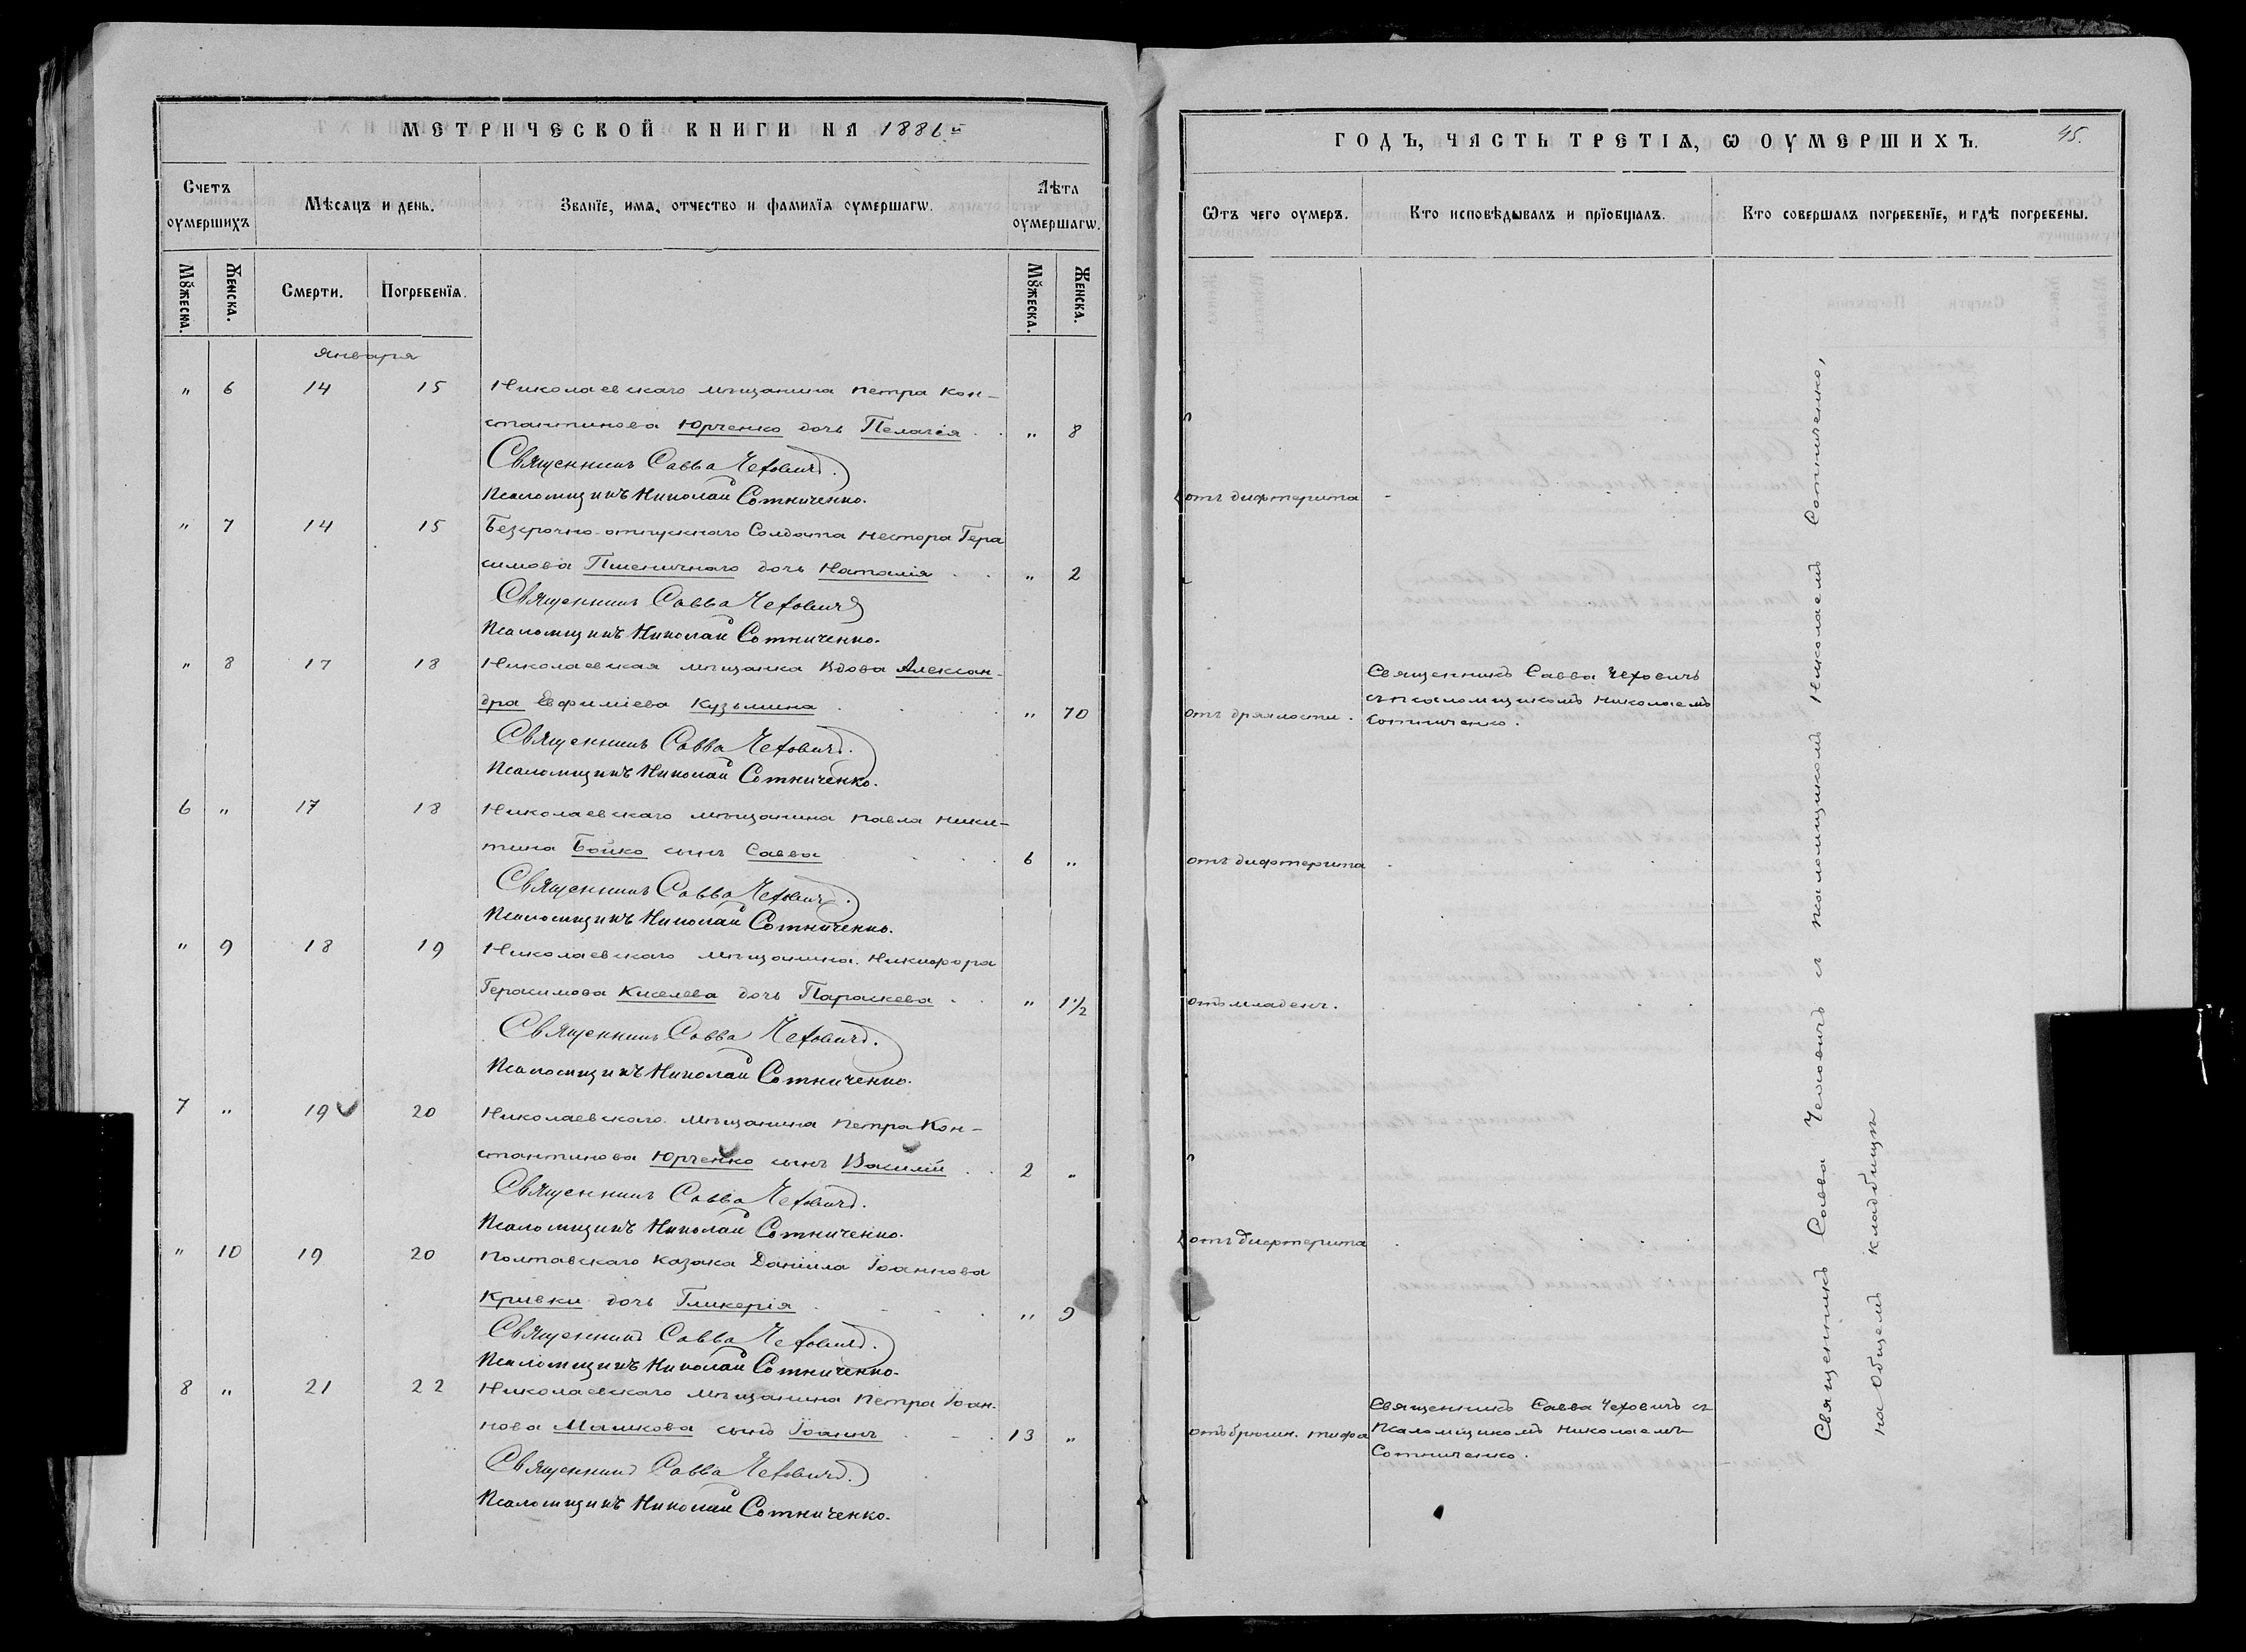 МЕТРИЧЕСКОЙ КНИГИ НА 1886й
Счетъ оумершихъ
Мѣсяцъ и день.
Званїе, имя, отчество и фамилїя оумершагѡ.
Лѣта оумершагѡ.
Мꙋжеска.
Женска.
Смерти.
Погребенїѧ.
Мꙋжеска.
Женска.
Января
" 6 14 15 Николаевскаго мѣщанина Петра Кон-
стантинова Юрченко дочь Пелагія . . " 8
Священникъ Савва Чеховичъ.
Псаломщикъ Николай Сотниченко.
" 7 14 15 Безсрочно-отпускнаго Солдата Нестора Гера
симова Пшеничнаго дочь Наталія . . " 2
Священникъ Савва Чеховичъ
Псаломщикъ Николай Сотниченко.
" 8 17 18 Николаевская мѣщанка Вдова Алексан-
дра Евфиміева Кузьмина . . . . " 70
Священникъ Савва Чеховичъ.
Псаломщикъ Николай Сотниченко.
6 " 17 18 Николаевскаго мѣщанина Павла Ники-
тина Бойко сынъ Савва . . . . 6 "
Священникъ Савва Чеховичъ.
Псаломщикъ Николай Сотниченко.
" 9 18 19 Николаевскаго мѣщанина Никифора
Герасимова Киселева дочь Параскева . . " 1½
Священникъ Савва Чеховичъ.
Псаломщикъ Николай Сотниченко.
7 " 19 20 Николаевскаго мѣщанина Петра Кон-
стантинова Юрченко сынъ Василій . . 2 "
Священникъ Савва Чеховичъ.
Псаломщикъ Николай Сотниченко.
" 10 19 20 Полтавскаго казака Даніила Іоаннова
Кривки дочь Гликерія . . . . " 9
Священникъ Савва Чеховичъ.
Псаломщикъ Николай Сотниченко.
8 " 21 22 Николаевскаго мѣщанина Петра Іоан-
нова Машкова сынъ Іоаннъ . . . 13 "
Священникъ Савва Чеховичъ.
Псаломщикъ Николай Сотниченко.
ГОДЪ, ЧАСТЬ ТРЕТІѦ, Ѡ ОУМЕРШИХЪ.
45.
Ѿтъ чего оумеръ.
Кто исповѣдывалъ и прїобщалъ.
Кто совершалъ погребенїе, и гдѣ погребены.
отъ дифтерита
отъ дряхлости.
Священникъ Савва Чеховичъ
съ псаломщикомъ Николаемъ
Сотниченко.
отъ дифтерита
отъ младенч.
отъ дифтерита
отъ брюшн. тифа
Священникъ Савва Чеховичъ съ
Псаломщикомъ Николаемъ
Сотниченко.
Священникъ Савва Чеховичъ съ псаломщикомъ Николаемъ Сотниченко,
на общемъ кладбищѣ